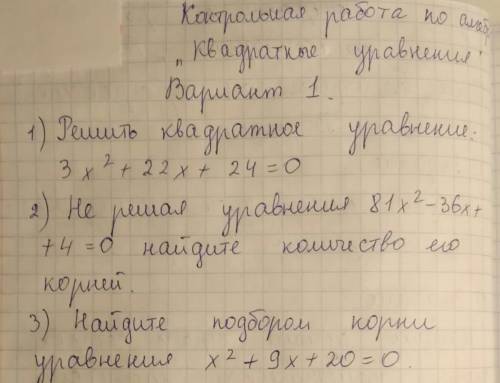 Контрольная работа по
„Квадратные уравнения"
Вариант 1.
1) Решить квадратное уравнение:
3x² + 22x + 24 = 0
2) Не решая уравнения 81x² – 36x +
+ 4 = 0 найдите количество его
корней.
3) Найдите подбором корни
уравнения x² + 9x + 20 = 0.